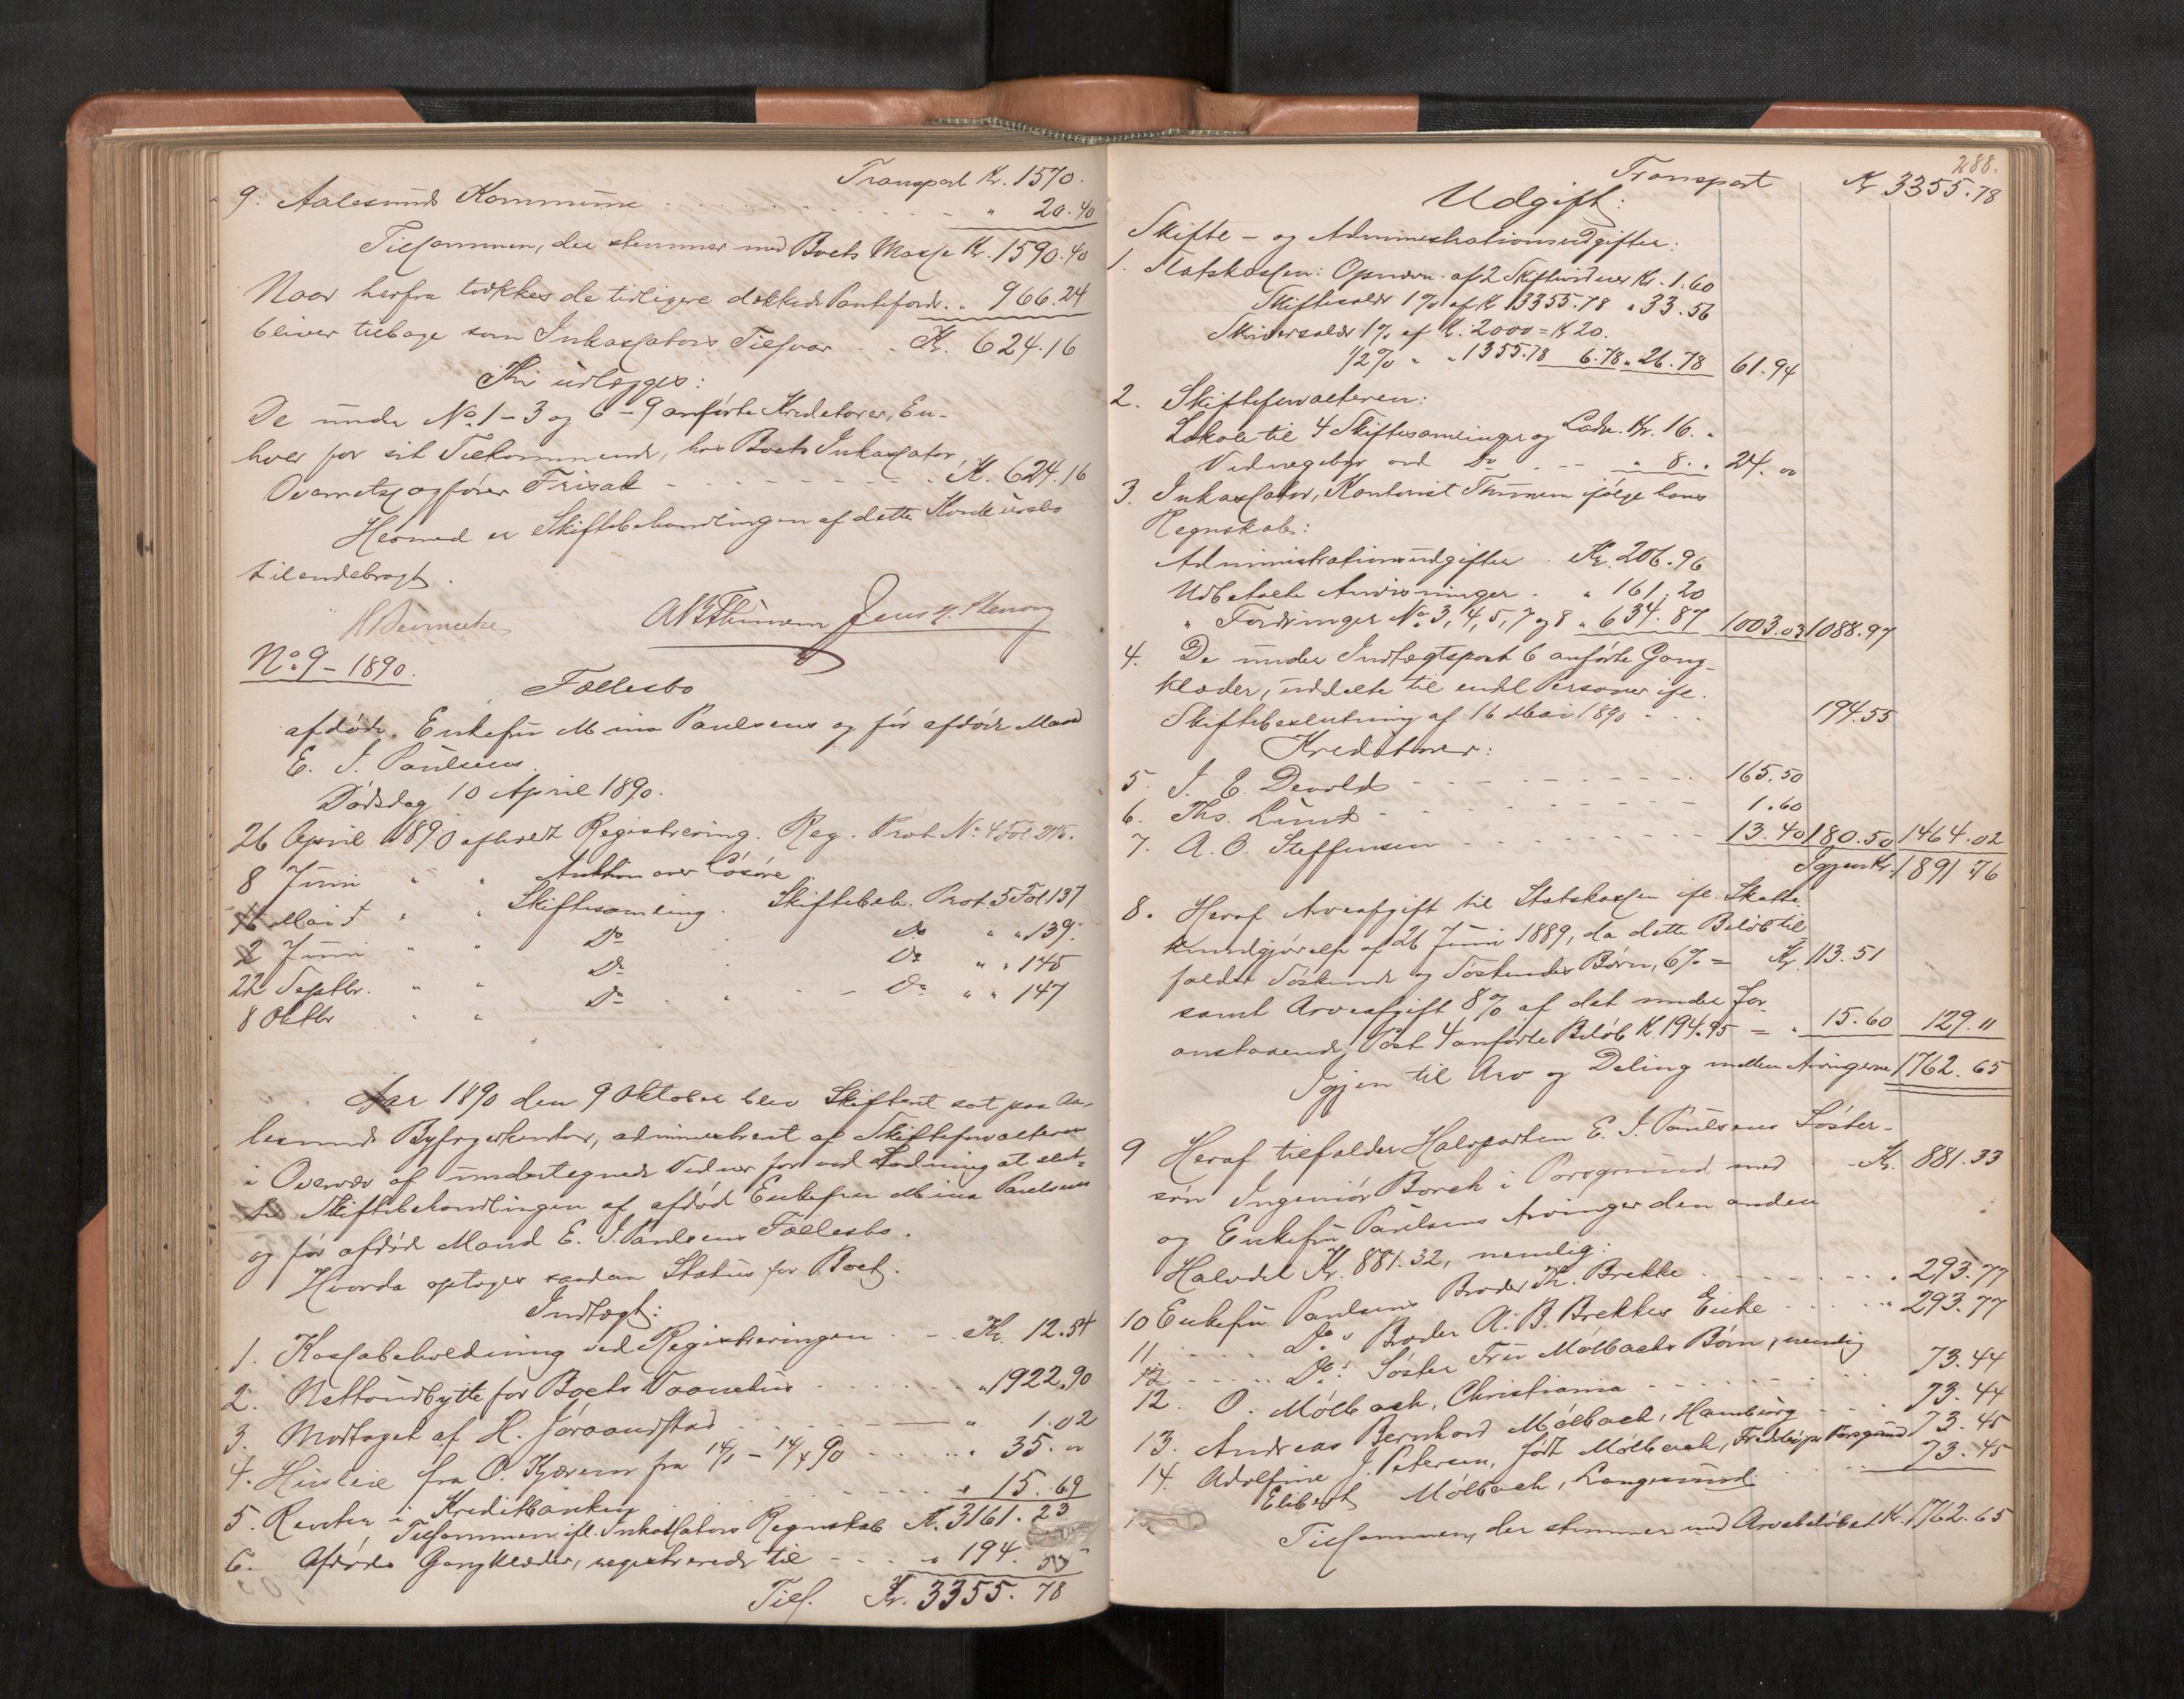 Transport Kr. 1570.
9. Aalesunds Kommune . . . . . . . . . . . " 20.40
Tilsammen, der stemmer med Boets Masse Kr. 1590.40
Naar herfra trækkes de tidligere dækkede Pantefordr. " 966.24
bliver tilbage som Inkassators Tilsvar . . Kr. 624.16
Thi udlægges:
De under No 1-3 og 6-9 anførte Kreditorer, En-
hver for sit Tilkommende, hos Boets Inkassator
Overretssagfører Frisak - - - - - - - - Kr. 624.16
Hermed er Skiftebehandlingen af dette Konkursbo
tilendebragt.
A B Thunem Jens
No 9 - 1890.
Fællesbo
afdøde Enkefru Mina Paulsens og før afdøde Mand
E. J. Paulsens.
Dødsdag 10 April 1890.
26 April 1890 afholdt Registrering. Reg. Prot. No 4 Fol 275.
8 Juni " " Auktion over Løsøre
16 Mai " " Skiftesamling. Skiftebeh. Prot. 5 Fol 137
2 Juni " " Do Do " " 139.
22 Septbr. " " Do Do " " 145
8 Oktbr " " Do Do " " 147
Aar 1890 den 9 Oktober blev Skifteret sat paa Aa-
lesunds Byfogedkontor, administreret af Skifteforvalteren
i Overvær af undertegnede Vidner for ved Lodning at slut-
te Skiftebehandlingen af afdød Enkefru Mina Paulsens
og før afdød Mand E. J. Paulsens Fællesbo.
Hvorda optoges saadan Status for Boet.
Indtægt:
1. Kassabeholdning ved Registreringen . - Kr. 12.54
2. Nettoudbytte for Boets Vaanehus . . . . . . " 1922.90
3. Modtaget af H. Jøraandstad . . . . " 1.02
4. Husleie fra O. Kjærem fra 14/1 - 14/4 90 . . . . . " 35. "
5. Renter i Kreditbanken . . . . . . . . . " 15.69
Tilsammen ifl. Inkassators Regnskab Kr. 3161.23
6. Afdødes Gangklæder, registrerede til - - - - " 194.55
Tils. Kr. 3355.78
288.
Transport Kr 3355.78
Udgift:
Skifte- og Administrationsudgifter:
1. Statskassen: Opnævn. af 2 Skiftevidner Kr. 1.60
Skiftesalær 1% af Kr 3355.78 " 33.56
Skriversalær 1% af Kr. 2000 = Kr 20.
1/2% " " 1355.78 6.78 " 26.78 61.94
2. Skifteforvalteren:
Lokale til 4 Skiftesamlinger og Lodn. Kr. 16. "
Vidnegebyr ved Do . - - " 8. " 24. "
3. Inkassator, Kontorist Thunem ifølge hans
Regnskab:
Administrationsudgifter . Kr. 206.96
Udbetalte Anvisninger . " 161.20
" Fordringer No 3, 4, 5, 7 og 8 " 634.87 1003.03 1088.97
4. De under Indtægtspost 6 anførte Gang-
klæder, uddelte til endel Personer ifl.
Skiftebeslutning af 16 Mai 1890 . . . 194.55
Kreditorer:
5. J. E. Devolds - - - - - - - - - 165.50
6. Ths. Lund - - - - - - - - - 1.60
7. A. O. Steffensen - - - - - - - - 13.40 180.50 1464.02
Igjen Kr. 1891.76
8. Heraf Arveafgift til Statskassen ifl. Skatte-
kundgjørelse af 26 Juni 1889, da dette Beløb til-
falder Søskende og Søskendes Børn, 6% = Kr. 113.51
samt Arveafgift 8% af det under for-
anstaaende Post 4 anførte Beløb Kr. 194.95 = " 15.60 129.11
Igjen til Arv og Deling mellem Arvingerne 1762.65
9 Heraf tilfalder Halvparten E. J. Paulsens Søster-
søn Ingeniør Borch i Porsgrund med - Kr. 881.33
og Enkefru Paulsens Arvinger den anden
Halvdel Kr. 881.32, nemlig:
10 Enkefru Paulsens Broder Th. Brekke . . . . . . . . " 293.77
11 . . . . Do's Broder A. B. Brekkes Enke . . . . . . " 293.77
12 . . . . . Do's Søster Fru Mølbachs Børn, nemlig
12. O. Mølbach, Christiania - - - - - - - - - 73.44
13. Andreas Bernhard Mølbach, Hamburg - - - 73.44
14. Adolfine J. Petersen, født Mølbach, Porsgrund 73.45
Elibert Mølbach, Langesund . . . . . 73.45
Tilsammen, der stemmer med Arvebeløbet Kr. 1762.65